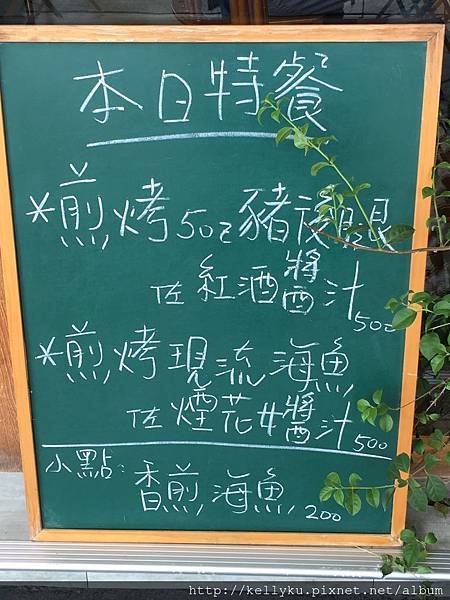 本日特餐
*煎烤5oz豬後腿眼
佐紅酒醬汁500
*煎烤現流海魚
佐煙花女醬汁500
小點:
香煎海魚200
http://kellyku.pixnet.net/album